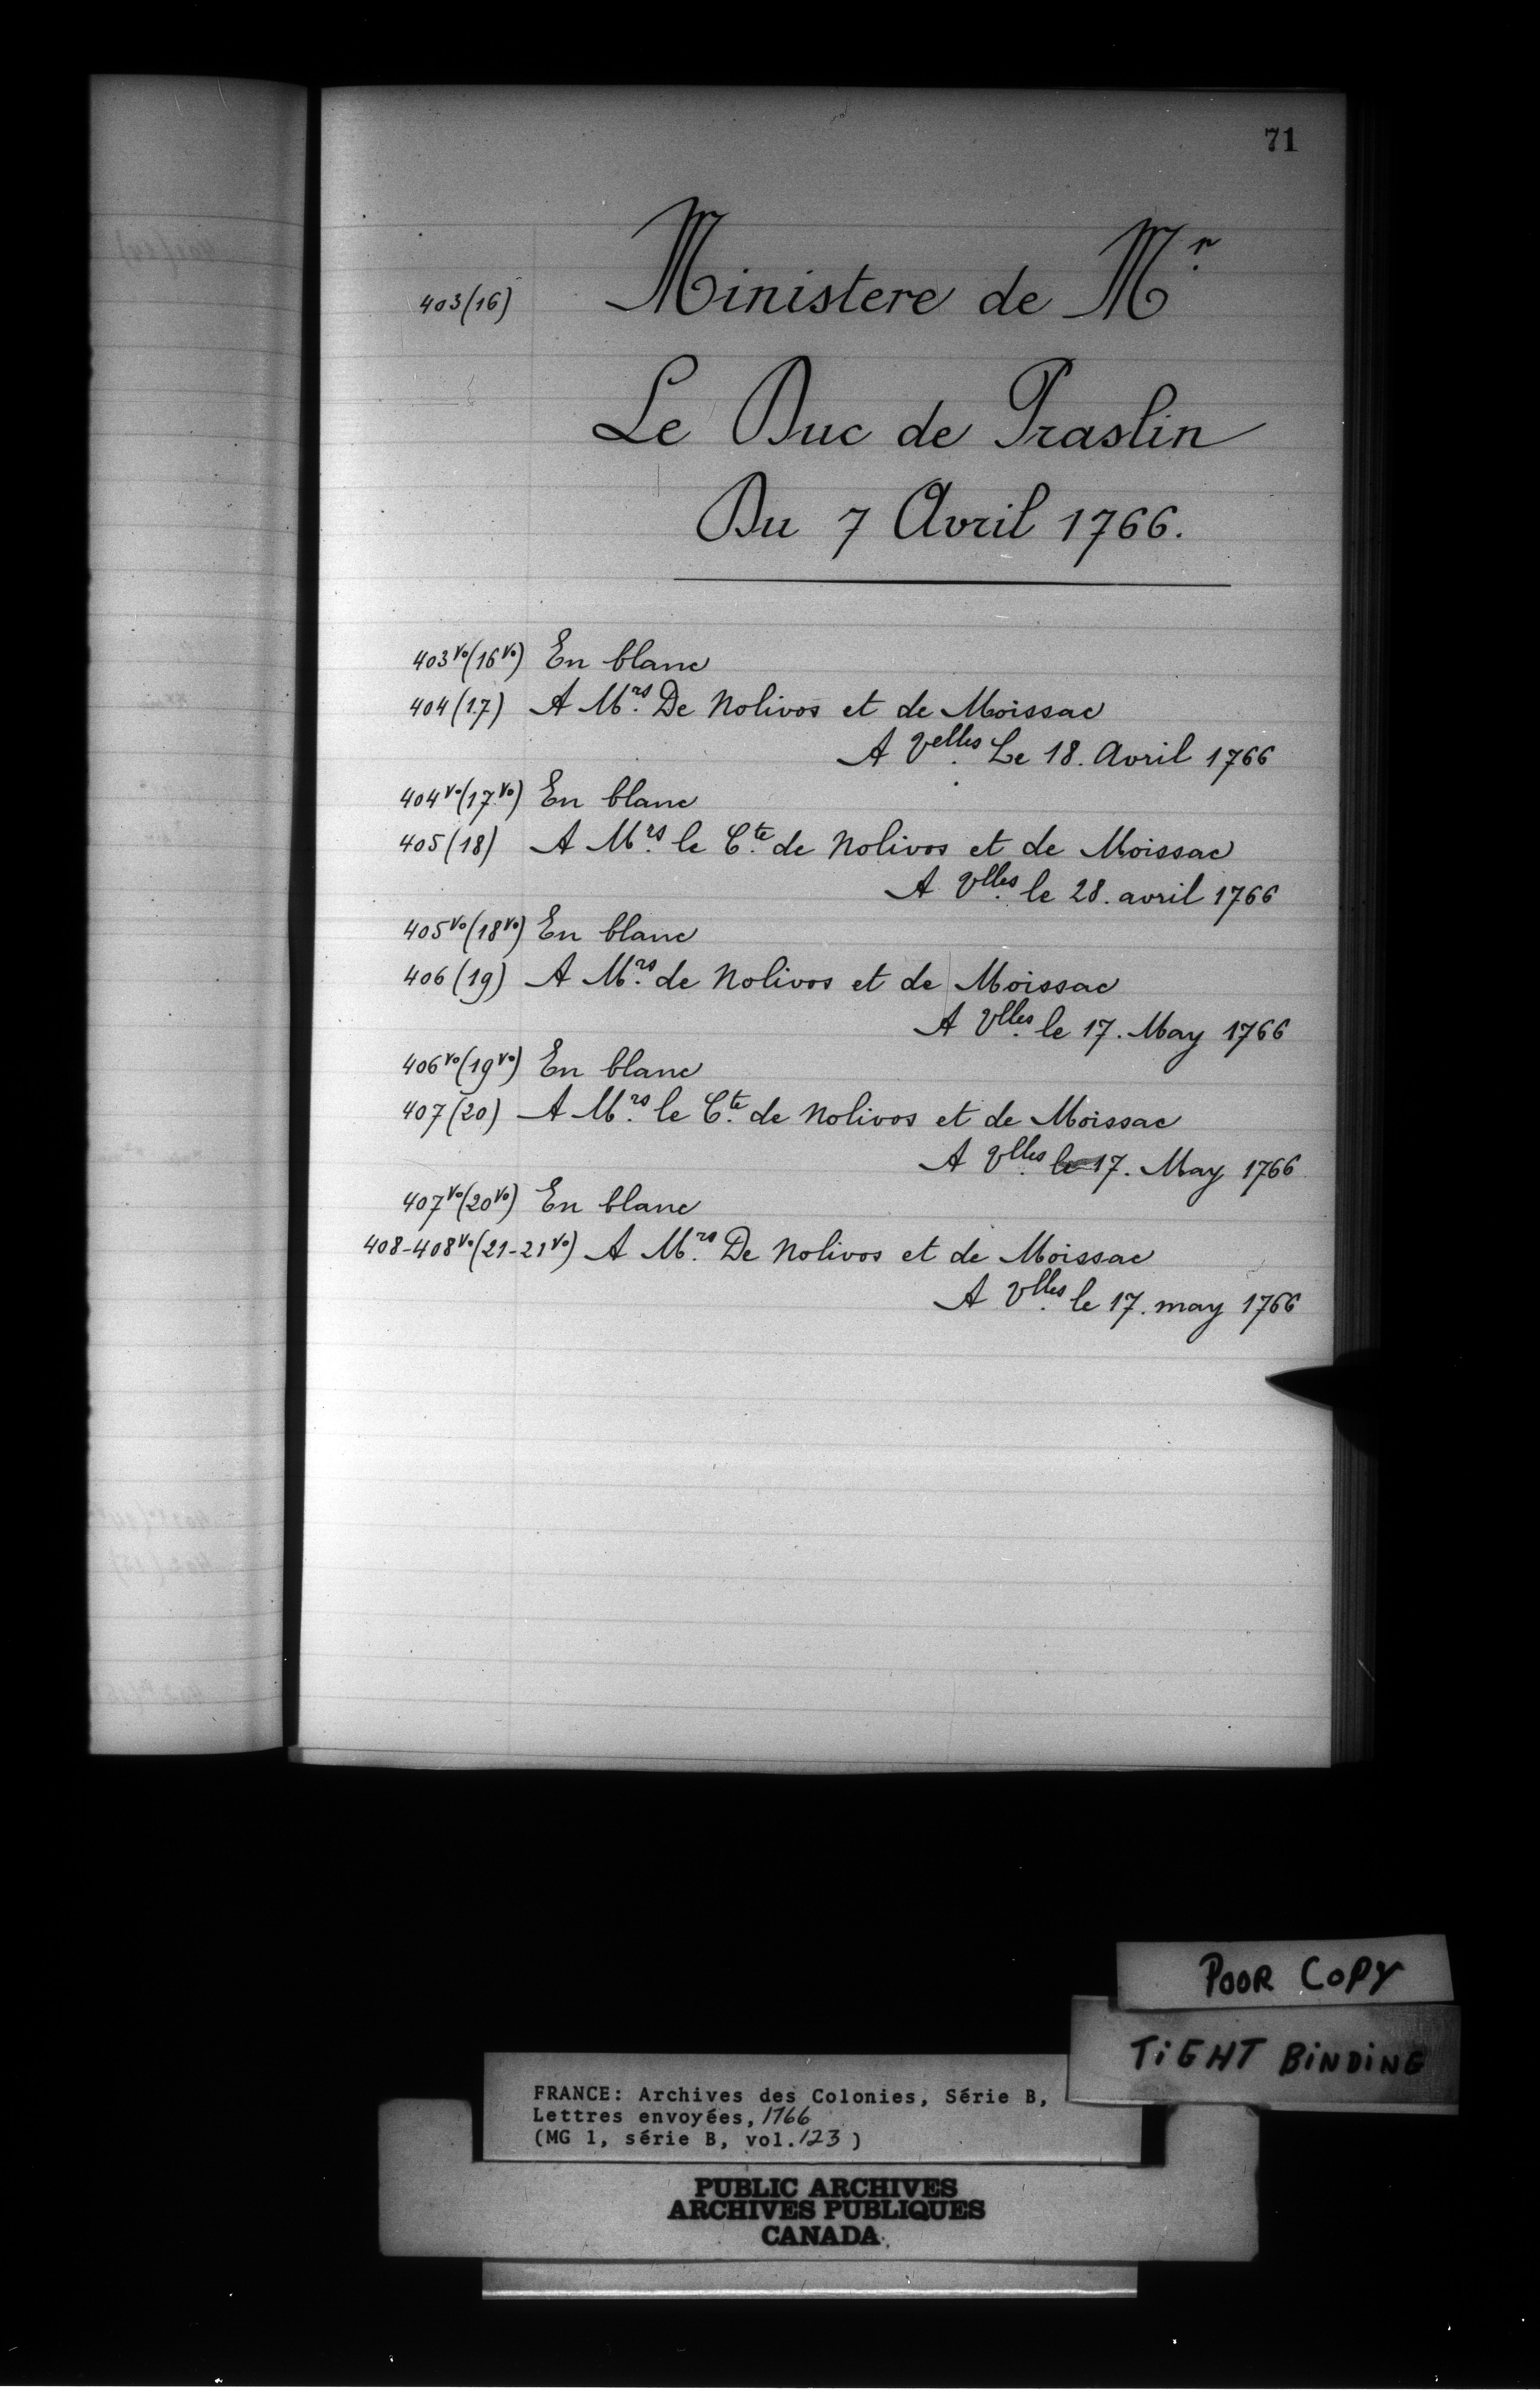 71
403(16) Ministere de Mr.
Le Duc de Praslin
Du 7 Avril 1766.
403vo(16vo) En blanc
404(17) A Mrs. De Nolivos et de Moissac
A Velles. Le 18. Avril 1766
404vo(17vo) En blanc
405(18) A Mrs. le Cte. de Nolivos et de Moissac
A Vlles. le 28. avril 1766
405vo(18vo) En blanc
406(19) A Mrs. de Nolivos et de Moissac
A Vlles. le 17. May 1766
406vo(19vo) En blanc
407(20) A Mrs. le Cte. de Nolivos et de Moissac
A Vlles. le 17. May 1766
407vo(20vo) En blanc
408-408vo(21-21vo) A Mrs. De Nolivos et de Moissac
A Vlles. le 17. may 1766
POOR COPY
TiGHT BiNDiNG
FRANCE: Archives des Colonies, Série B,
Lettres envoyées, 1766
(MG 1, série B, vol. 123)
PUBLIC ARCHIVES
ARCHIVES PUBLIQUES
CANADA